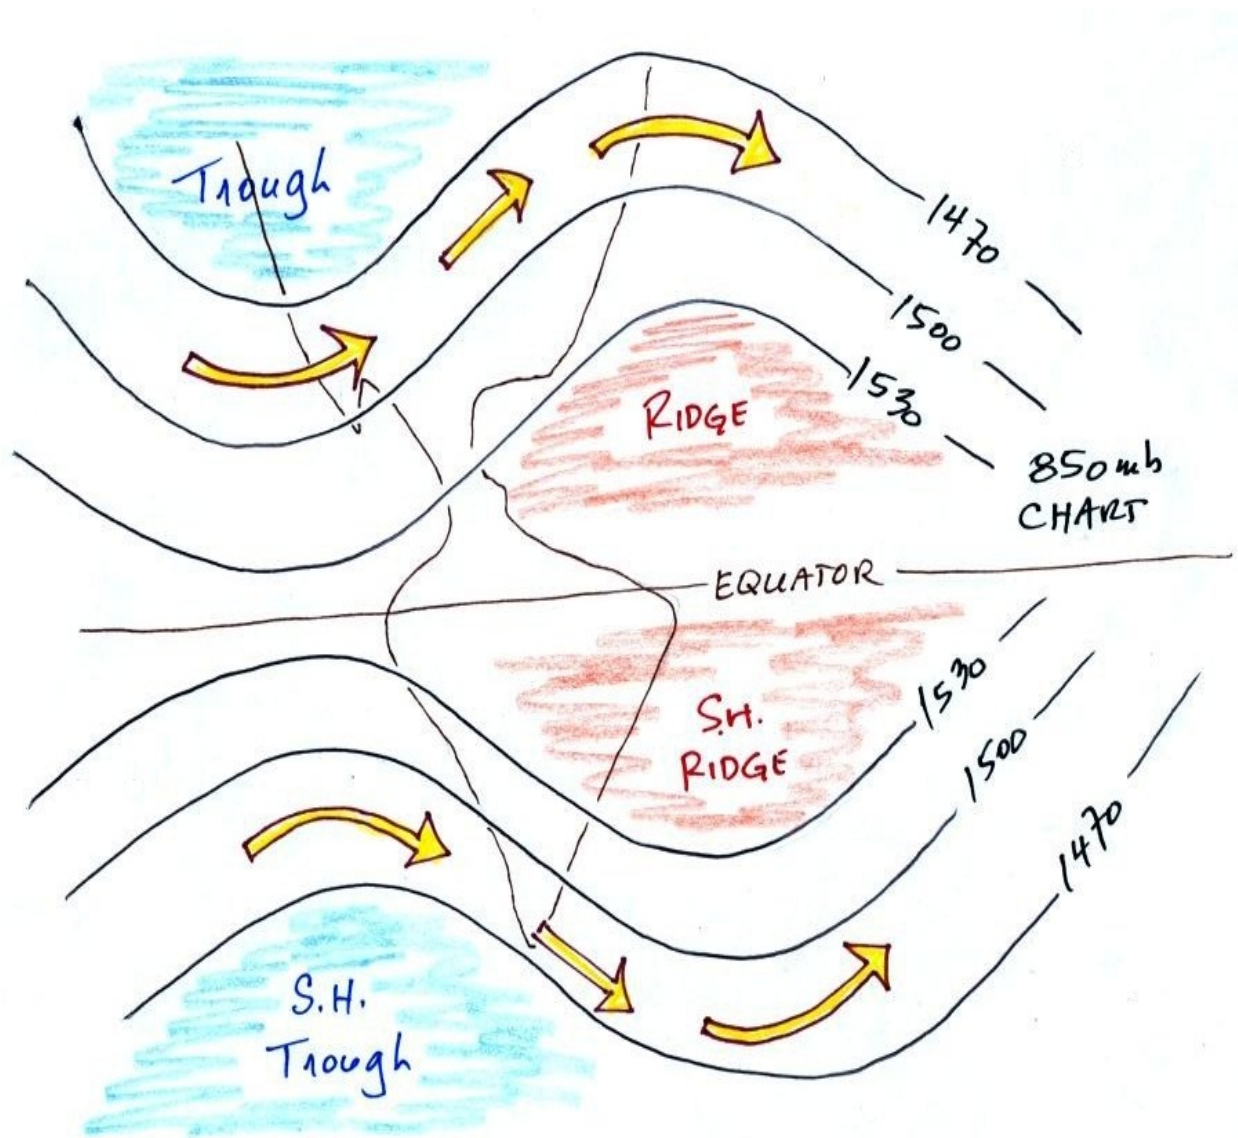 Trough
1470
1500
1530
RIDGE
850mb
CHART
EQUATOR
S.H.
RIDGE
1530
1500
1470
S.H.
Trough